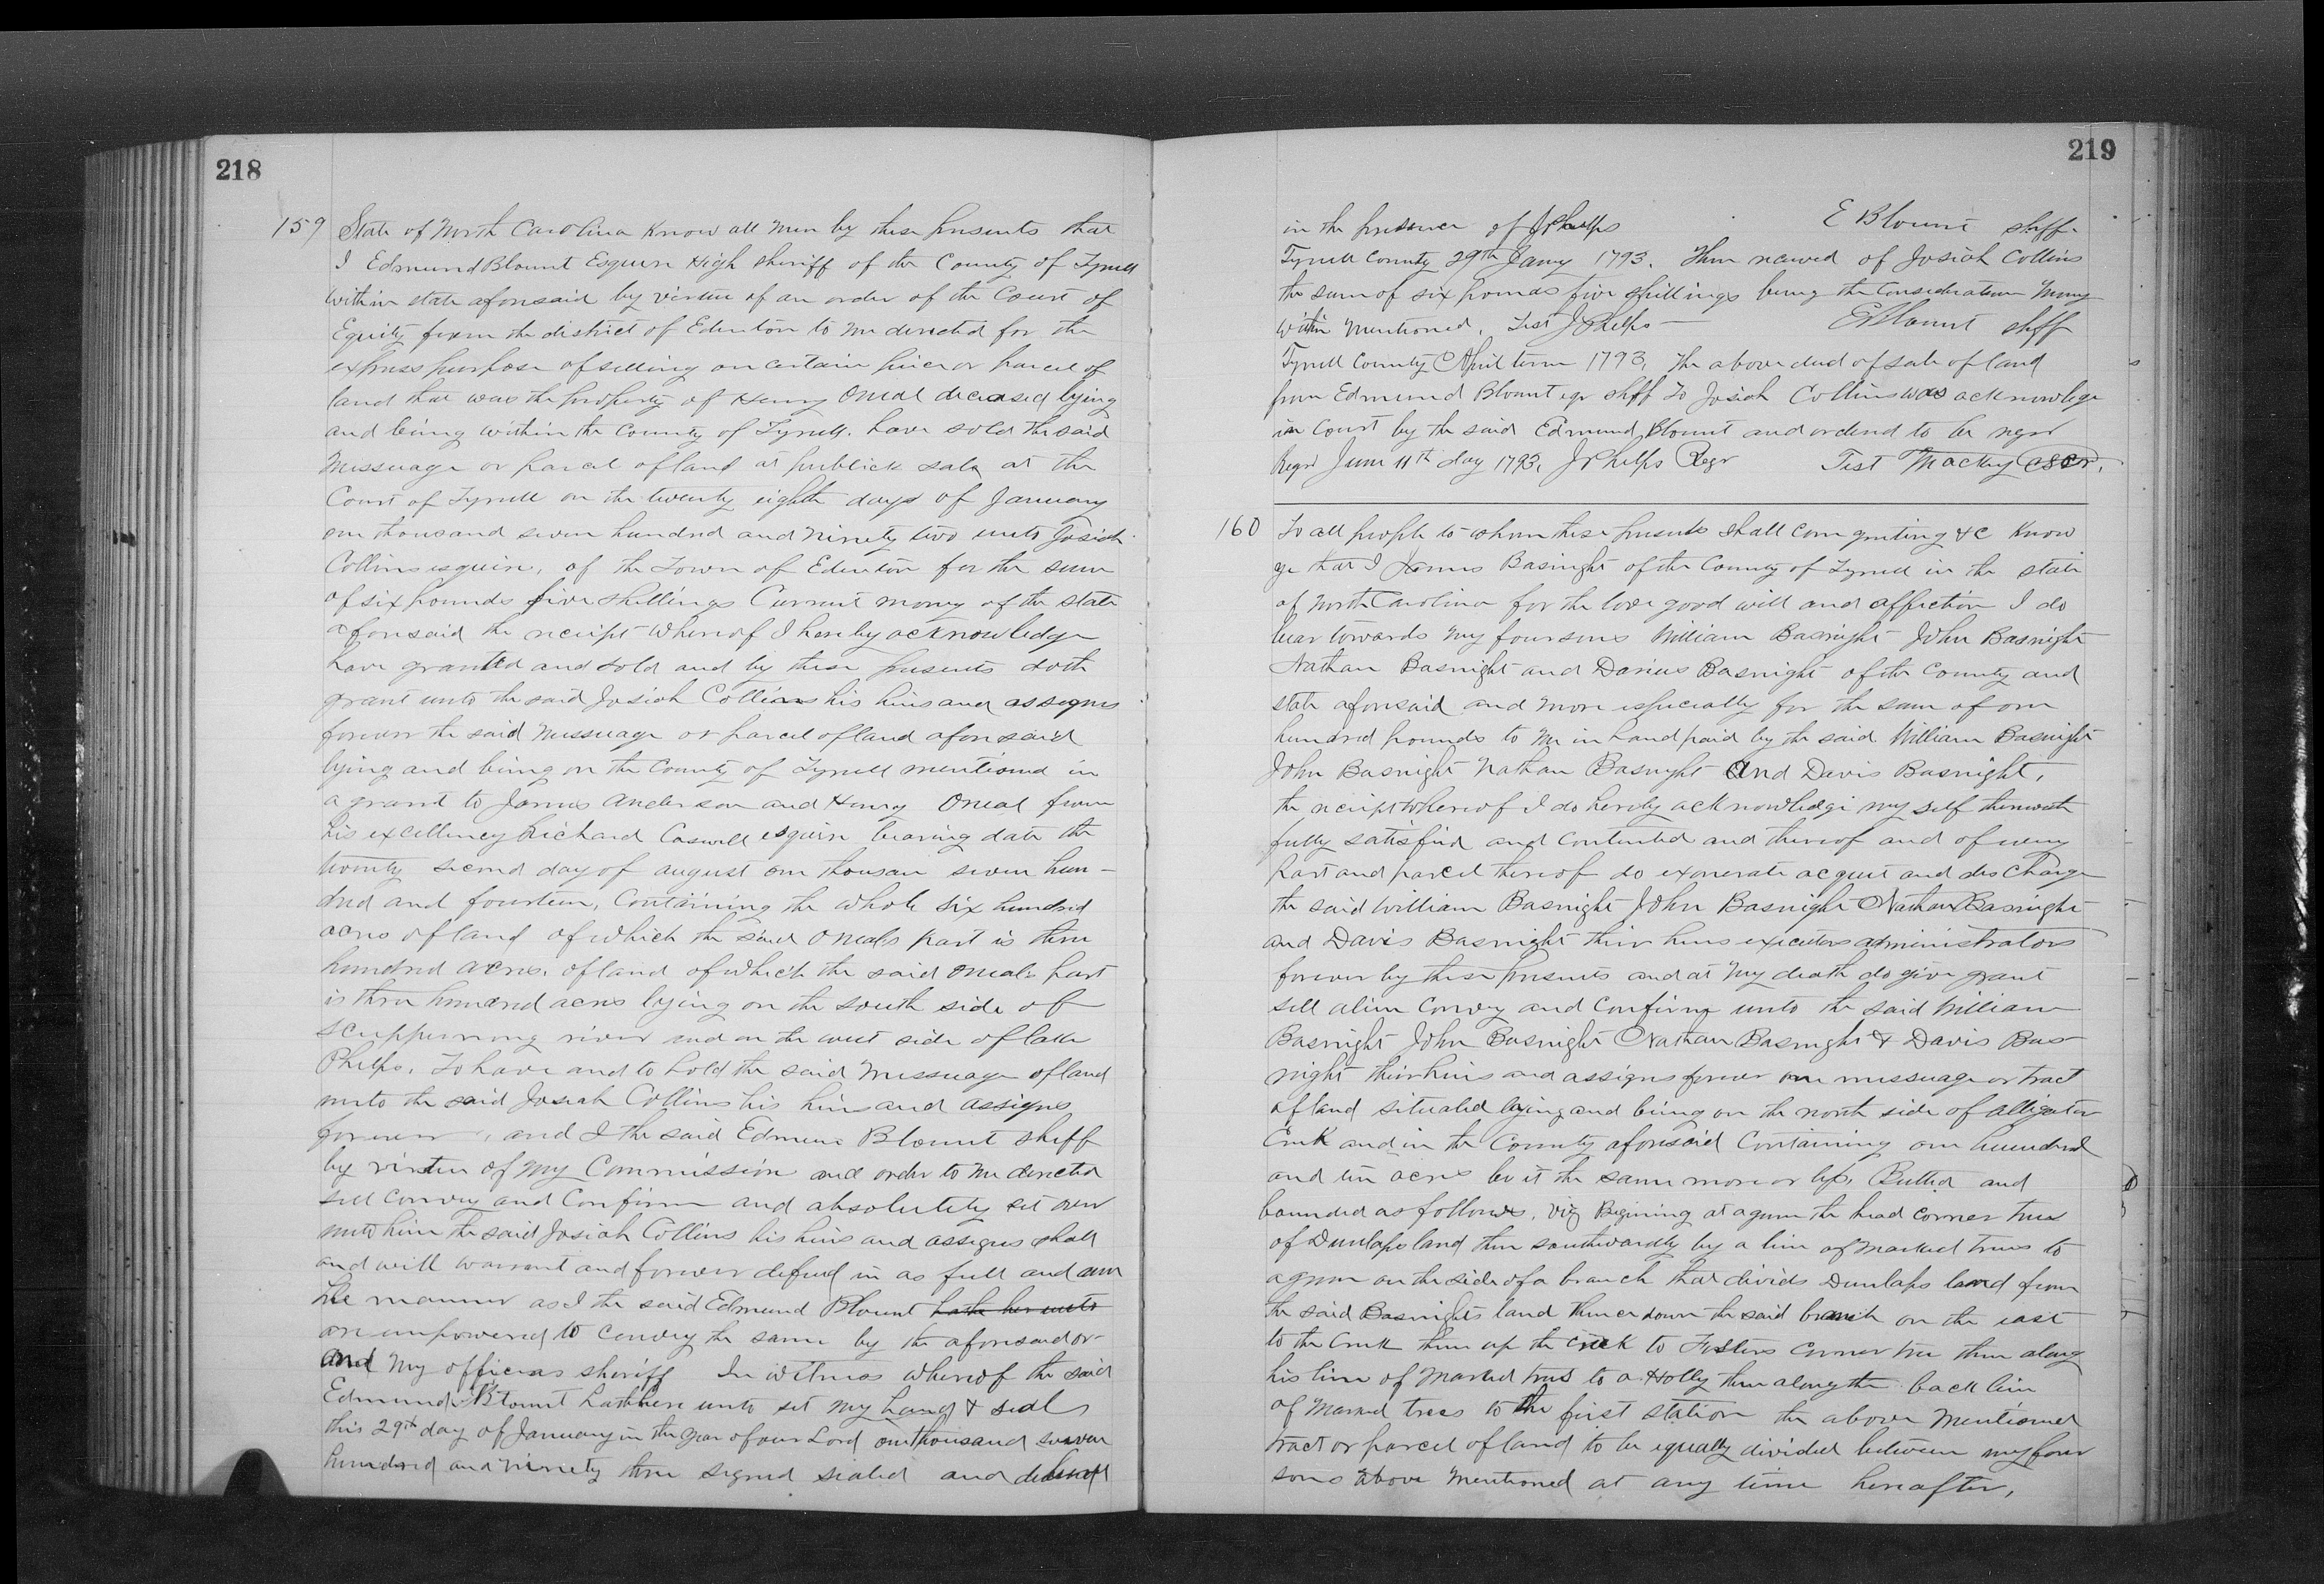 218
159 State of North Carolina Know all Men by these presents that
I Edmund Blount Esquire High Sheriff of the County of Tyrrell
within state aforesaid by virtue of an order of the Court of
Equity from the district of Edenton to me directed for the
express purpose of selling on certain piece or parcel of
land that was the property of Henry Oneal deceased lying
and being within the County of Tyrrell. have sold the said
Messuage or parcel of land at publick sale at the
Court of Tyrrell on the twenty eighth days of January
one thousand seven hundred and Ninety two unto Josiah
Collins esquire, of the Town of Edenton for the sum
of six pounds five shillings Current money of the state
aforesaid the receipt whereof I hereby acknowledge
have granted and sold and by these presents doth
grant unto the said Josiah Collins his heirs and assigns
forever the said Messuage or parcel of land aforesaid
lying and being on the County of Tyrrell mentioned in
a grant to James Anderson and Henry Oneal from
his excellency Richard Caswell esquire bearing date the
twenty second day of august one thousan seven hun-
dred and fourteen, Containing the whole six hundred
acres of land of which the said Oneals part is three
hundred acres. of land of which the said Oneals part
is three hundred acres lying on the south side of
Scuppernong river and on the west side of lake
Phelps. To have and to hold the said Messuage of land
unto the said Josiah Collins his heirs and assigns
forever, and I the said Edmund Blount shff
by virtue of my Commission and order to me directed
sell convey and Confirm and absolutely set over
unto him the said Josiah Collins his heirs and assigns shall
and will warrant and forever defend in as full and
manner as I the said Edmund Blount
empowered to convey the same by the aforesaid or-
and My office as sheriff In witness whereof the said
Edmund Blount hath here unto set my hand & seal
this 29th day of January in the year of our Lord one thousand seven
hundred and ninety three signed sealed and
219
in the presence of J Phelps E Blount shff
Tyrrell County 29th Jany 1793. Then received of Josiah Collins
the sum of six pounds five shillings being the Consideration Money
within Mentioned. Test J Phelps — E Blount shff
Tyrrell County April term 1793, The above deed of sale of land
from Edmund Blount esqr shff To Josiah Collins was acknowlege
in Court by the said Edmund Blount and ordered to be regd
Regd June 11th day 1793, J Phelps Regr Test Mackey
160 To all people to whom these presents shall come greeting &c Know
ye that I James Basnight of the County of Tyrrell in the state
of North Carolina for the love good will and affection I do
bear towards my four sons William Basnight John Basnight
Nathan Basnight and Darius Basnight of the County and
state aforesaid and more especially for the sum of one
hundred pounds to me in hand paid by the said William Basnight
John Basnight Nathan Basnight And Davis Basnight,
the receipt whereof I do hereby acknowledge my self therewith
fully satisfied and contented and thereof and of every
part and parcel thereof do exonerate acquit and discharge
the said William Basnight John Basnight Nathan Basnight
and Davis Basnight their heirs executors administrators
forever by these presents and at my death do give grant
sell alien convey and Confirm unto the said William
Basnight John Basnight Nathan Basnight & Davis Bas-
night their heirs and assigns forever one messuage or tract
of land situated lying and being on the north side of Alligator
Creek and in the County aforesaid Containing one hundred
and ten acres be it the same more or less, Butted and
bounded as follows, viz Begining at a gum the head corner tree
of Dunlaps land then southwardly by a line of marked trees to
a gum on the side of a branch that divides Dunlaps land from
the said Basnights land thence down the said branch on the east
to the Creek then up the creek to Fosters Corner tree then along
his line of marked trees to a Holly then along the back line
of marked trees to the first station the above mentioned
tract or parcel of land to be equally divided between my four
sons above mentioned at any time hereafter,